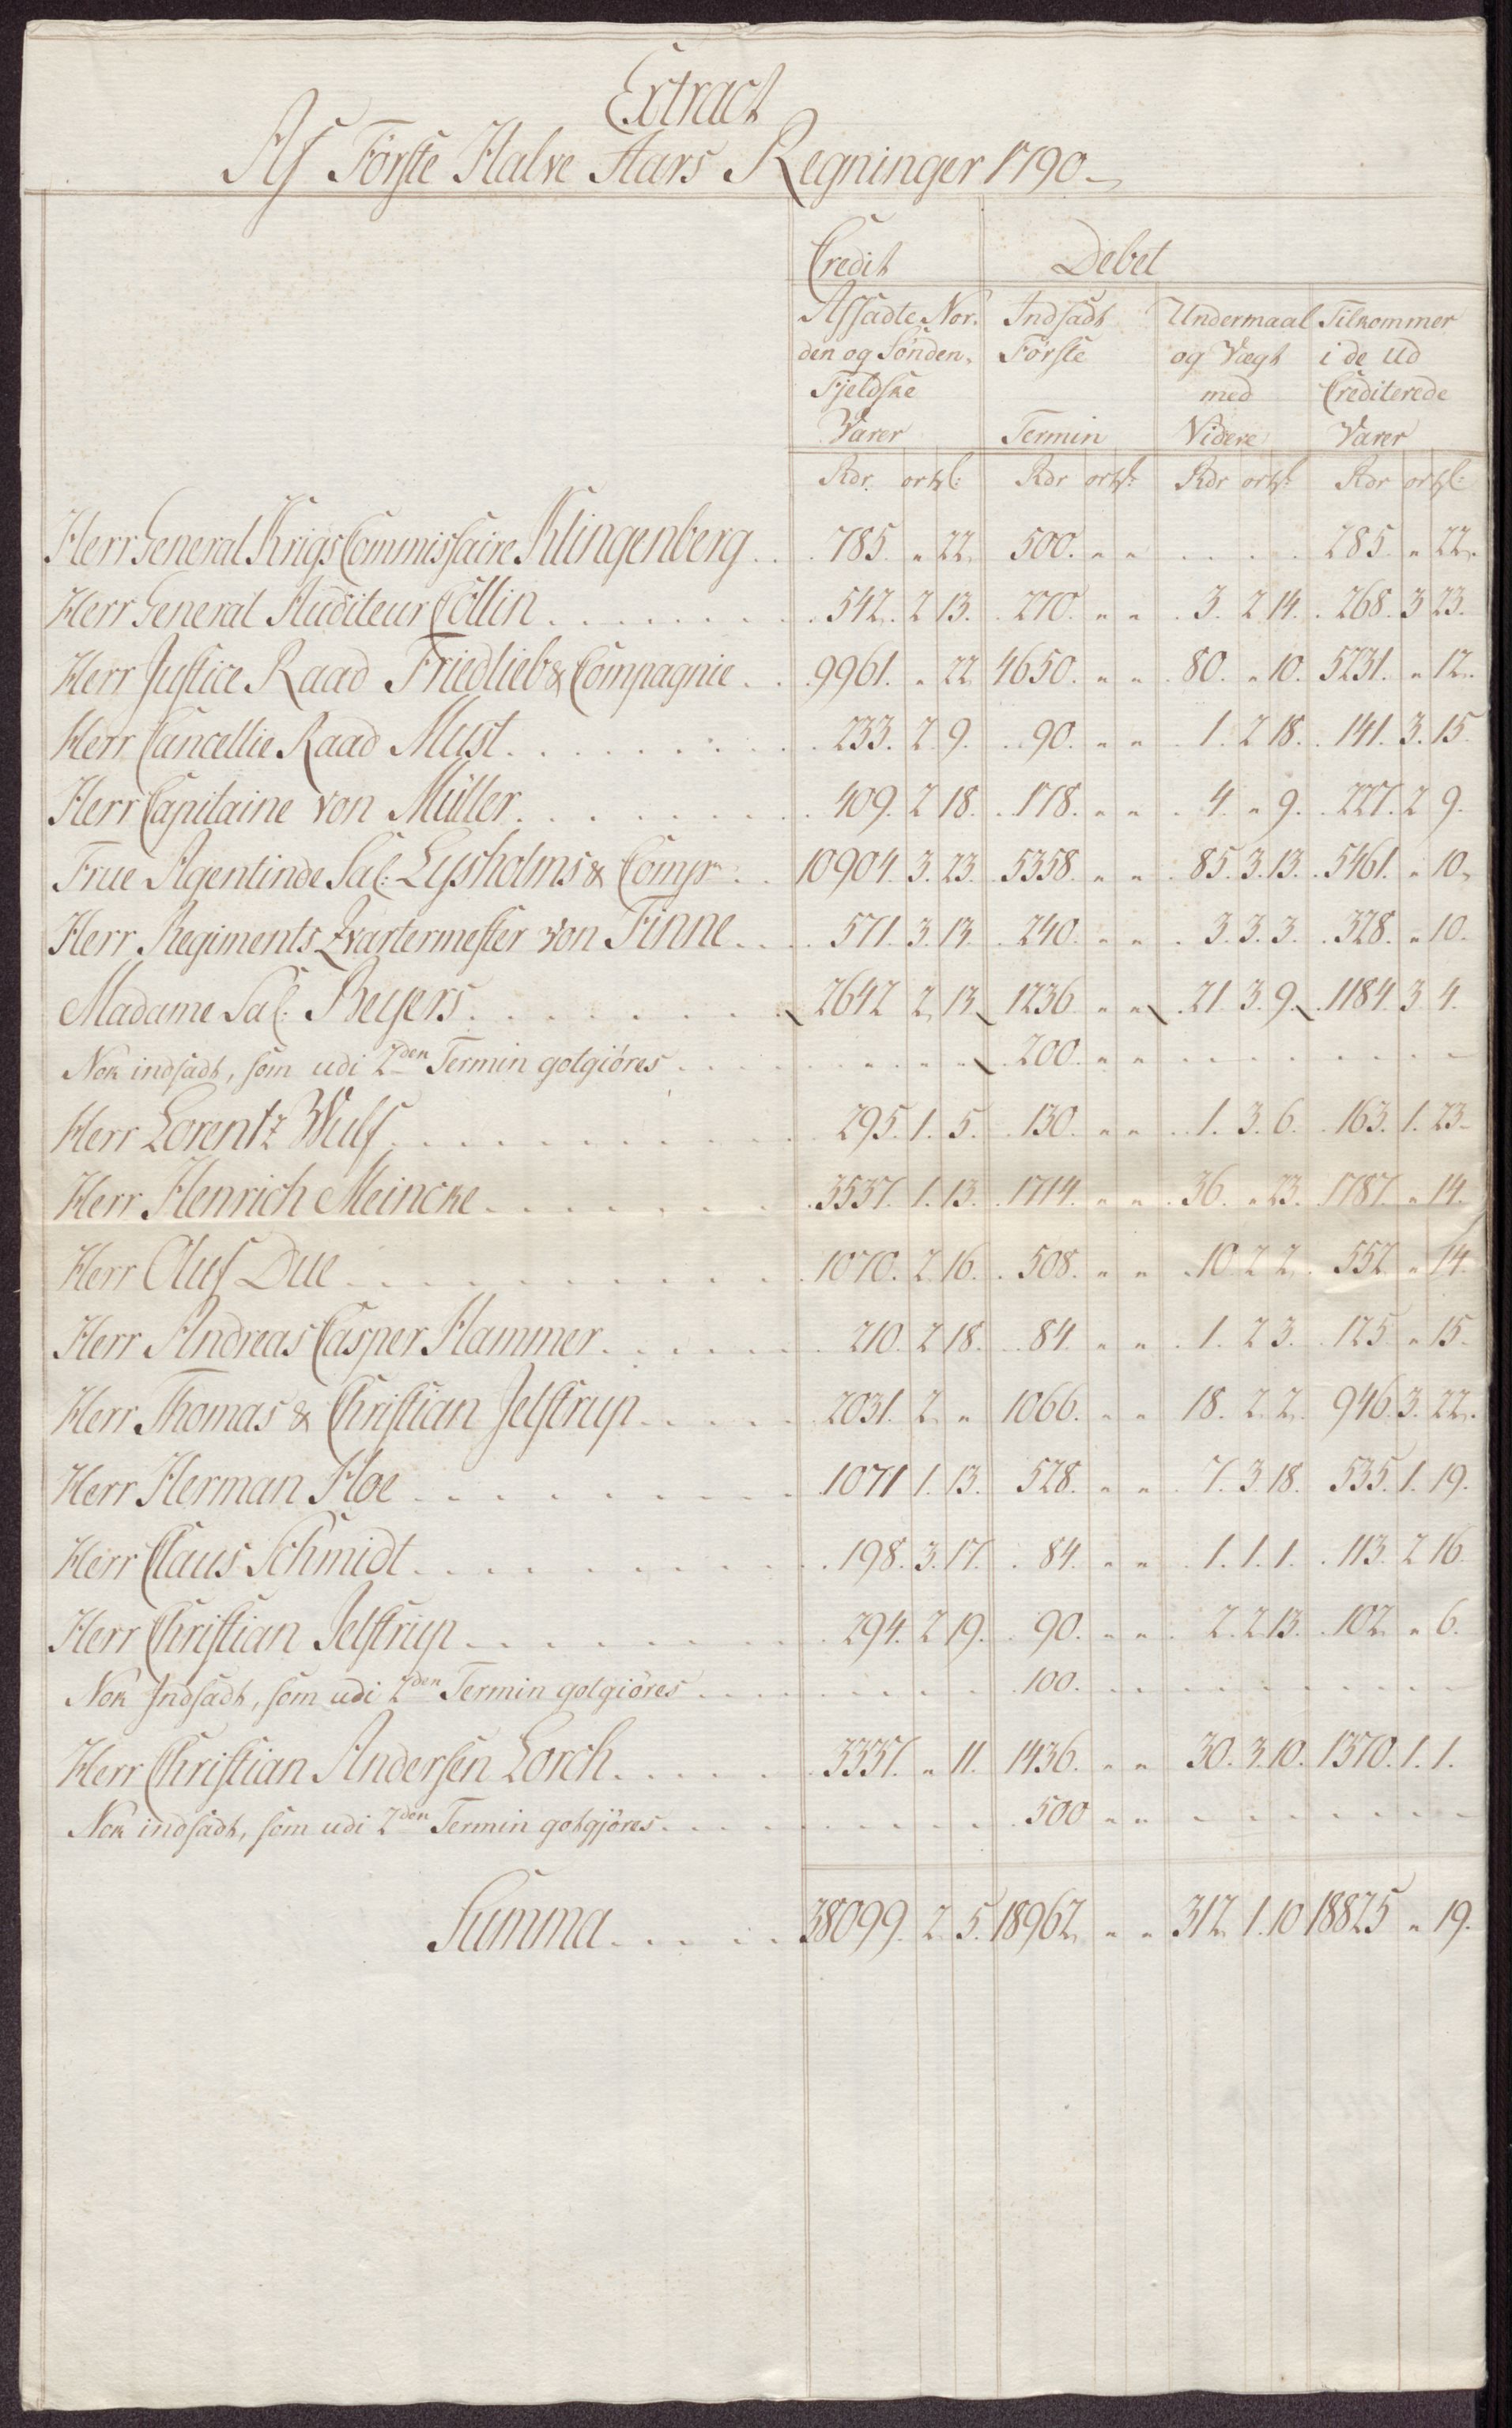 Extract
Af Første Halve Aars Regninger 1790
Credit Debet
Afsadte Nor- Indsadt Undermaal Tilkommer
den og Sønden- Første og Vægt i de ud
Fjeldske med Crediterede
Varer Termin Videre Varer
Rdr. ort ſ: Rdr ort ſ: Rdr ort ſ: Rdr ort ſ:
Herr General Krigs Commissaire Klingenberg . . 785. " 22. 500. " " . . . . 285. " 22.
Herr General Auditeur Collin . . . . . . . . 542. 2 13. 270. " " 3. 2 14. 268. 3 23.
Herr Justice Raad Friedlieb & Compagnie . . 9961. " 22 4650. " " 80. " 10. 5231. " 12.
Herr Cancellie Raad Must . . . . . . . . . 233. 2. 9. 90. " " 1. 2 18. 141. 3. 15.
Herr Capitaine von Müller . . . . . . . . 409. 2 18. 178. " " 4. " 9. 227. 2 9.
Frue Agentinde Sal: Lysholms & Comp . . 10904. 3. 23. 5358. " " 85. 3. 13. 5461. " 10.
Herr Regiments Qvartermester von Finne . . . 571. 3. 13. 240. " " 3. 3. 3. 328. " 10.
Madame Sal: Beyers . . . . . . . . 2642 2, 13 1236 " " 21. 3. 9. 1184. 3 4.
Nok indsadt, som udi 2den Termin gotgiöres . . . . . . . . 200. " " . . . . . . . .
Herr Lorentz Wulf . . . . . . . . . . . 295. 1. 5. 130. " " 1. 3. 6. 163. 1. 23.
Herr Henrich Meincke . . . . . . . . 3537. 1. 13. 1714. " " 36. " 23. 1787. " 14.
Herr Oluf Due . . . . . . . . . . . 1070. 2. 16. 508. " " 10. 2 2. 552 " 14.
Herr Andreas Casper Hammer . . . . . . 210. 2 18. 84. " " 1. 2 3. 125 " 15.
Herr Thomas & Christian Jelstrup . . . . . 2031. 2. " 1066. " " 18. 2. 2. 946. 3. 22.
Herr Herman Hoe . . . . . . . . . 1071 1. 13. 528. " " 7. 3. 18. 535. 1. 19.
Herr Claus Schmidt . . . . . . . . . 198. 3. 17. 84. " " 1. 1. 1. 113. 2 16.
Herr Christian Jelstrup . . . . . . . . 294. 2 19. 90. " " 2. 2 13. 102. " 6.
Nok Indsadt, som udi 2den Termin gotgiöres . . . . . . . . 100. . . . . . . . . .
Herr Christian Andersen Lorch . . . . . 3337. " 11. 1436. " " 30. 3. 10. 1370. 1. 1.
Nok indsadt, som udi 2den Termin gotgjöres . . . . . . . . 500 " " . . . . . . . .
Summa . . . . . 38099. 2. 5. 18962. " " 312. 1. 10 18825 " 19.